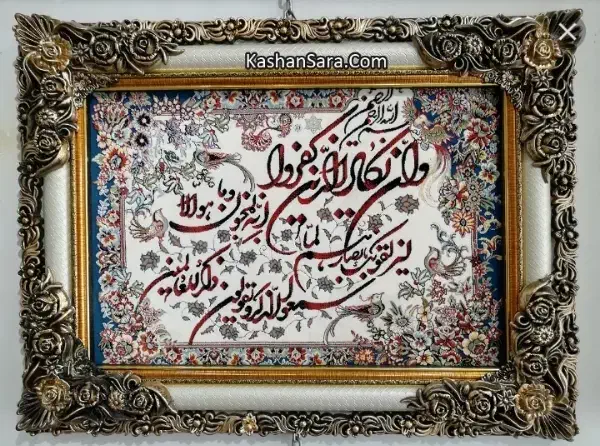 KashanSara.Com
بسم الله الرحمن الرحیم
وان یکاد الذین کفروا
لیزلقونک بابصارهم لما
سمعوا الذکر و یقولون
انه لمجنون وما هو الا
ذکر للعالمین